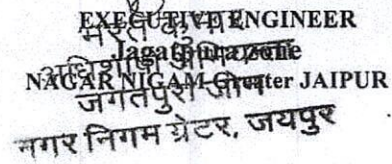 EXECUTIVE ENGINEER
Jagatpura zone
NAGAR NIGAM Greater JAIPUR
अधिशाषी अभियन्ता
जगतपुरा जोन
नगर निगम ग्रेटर, जयपुर